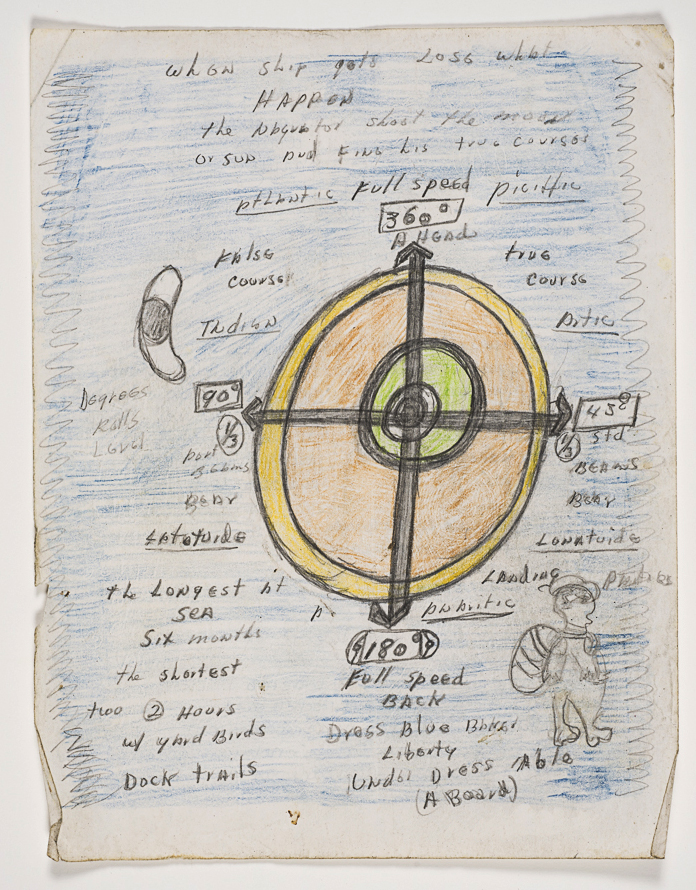 when ship gets Lose what
HAPPEN
the NAquator shoot the moon
or sun And Fine his true courses
Atlantic Full speed picific
360°
A HEAD
False
course
true
course
Indian
Artic
Degrees
Rolls
Level
90°
1/3
port
BEAr
45°
1/3
Std
BEAMS
BEAr
LAtatuide
Lonatuide
the Longest At
SEA
Six months
the shortest
two ② Hours
w/ yard Birds
Dock trails
LAnding
p
AnAritic
180°
Full speed
BACK
Dress Blue
Liberty
Under Dress Able
(A Board)